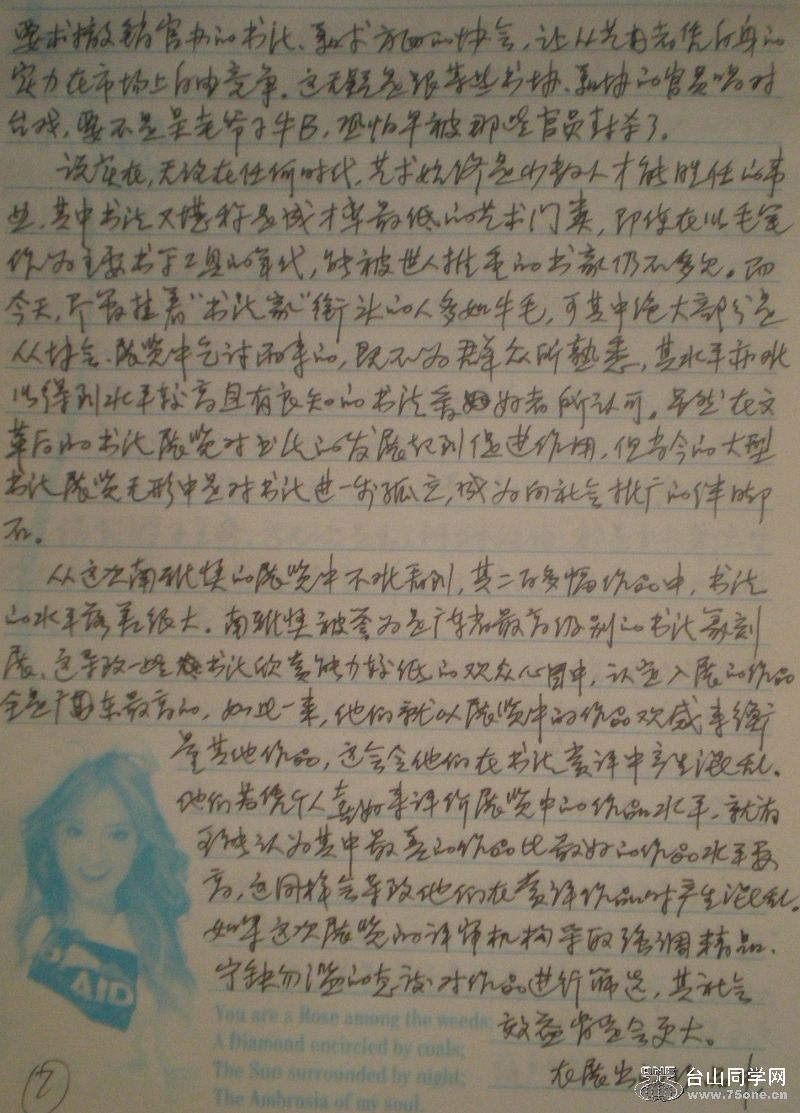 要求撤销官办的书法、美术方面的协会，让从艺者凭自身的
实力在市场上自由竞争。这无疑是跟某些书协、美协的官员唱对
台戏，要不是吴老爷子牛B，恐怕早被那些官员封杀了。
说实在，无论在任何时代，艺术始终是少数人才能胜任的事
业，其中书法又堪称是成才率最低的艺术门类，即使在以毛笔
作为主要书写工具的年代，能被世人推重的书家仍不多见。而
今天，尽管挂着“书法家”衔头的人多如牛毛，可其中绝大部分是
从协会、展览中乞讨而来的，既不为群众所熟悉，其水平亦难
以得到水平较高且有良知的书法爱好者所认可。虽然在文
革后的书法展览对书法的发展起到促进作用，但当今的大型
书法展览无形中是对书法进一步孤立，成为向社会推广的绊脚
石。
从这次南雅奖的展览中不难看到，其二百多幅作品中，书法
的水平落差很大。南雅奖被誉为是广东省最高级别的书法篆刻
展，这导致一些书法欣赏能力较低的观众心目中，认定入展的作品
全是广东最高的，如此一来，他们就以展览中的作品来衡
量其他作品，这会令他们在书法赏评中产生混乱。
他们若凭个人喜好来评价展览中的作品水平，就有
可能认为其中最差的作品比最好的作品水平要
高，这同样会导致他们在赏评作品时产生混乱。
如果这次展览的评审机构采取强调精品、
宁缺勿滥的态度对作品进行筛选，其社会
效益肯定会更大。
在展出
You are a Rose among the weeds;
A Diamond encircled by coals;
The Sun surrounded by night;
The Ambrosia of my soul
AID
2
台山同学网
www.75one.cn